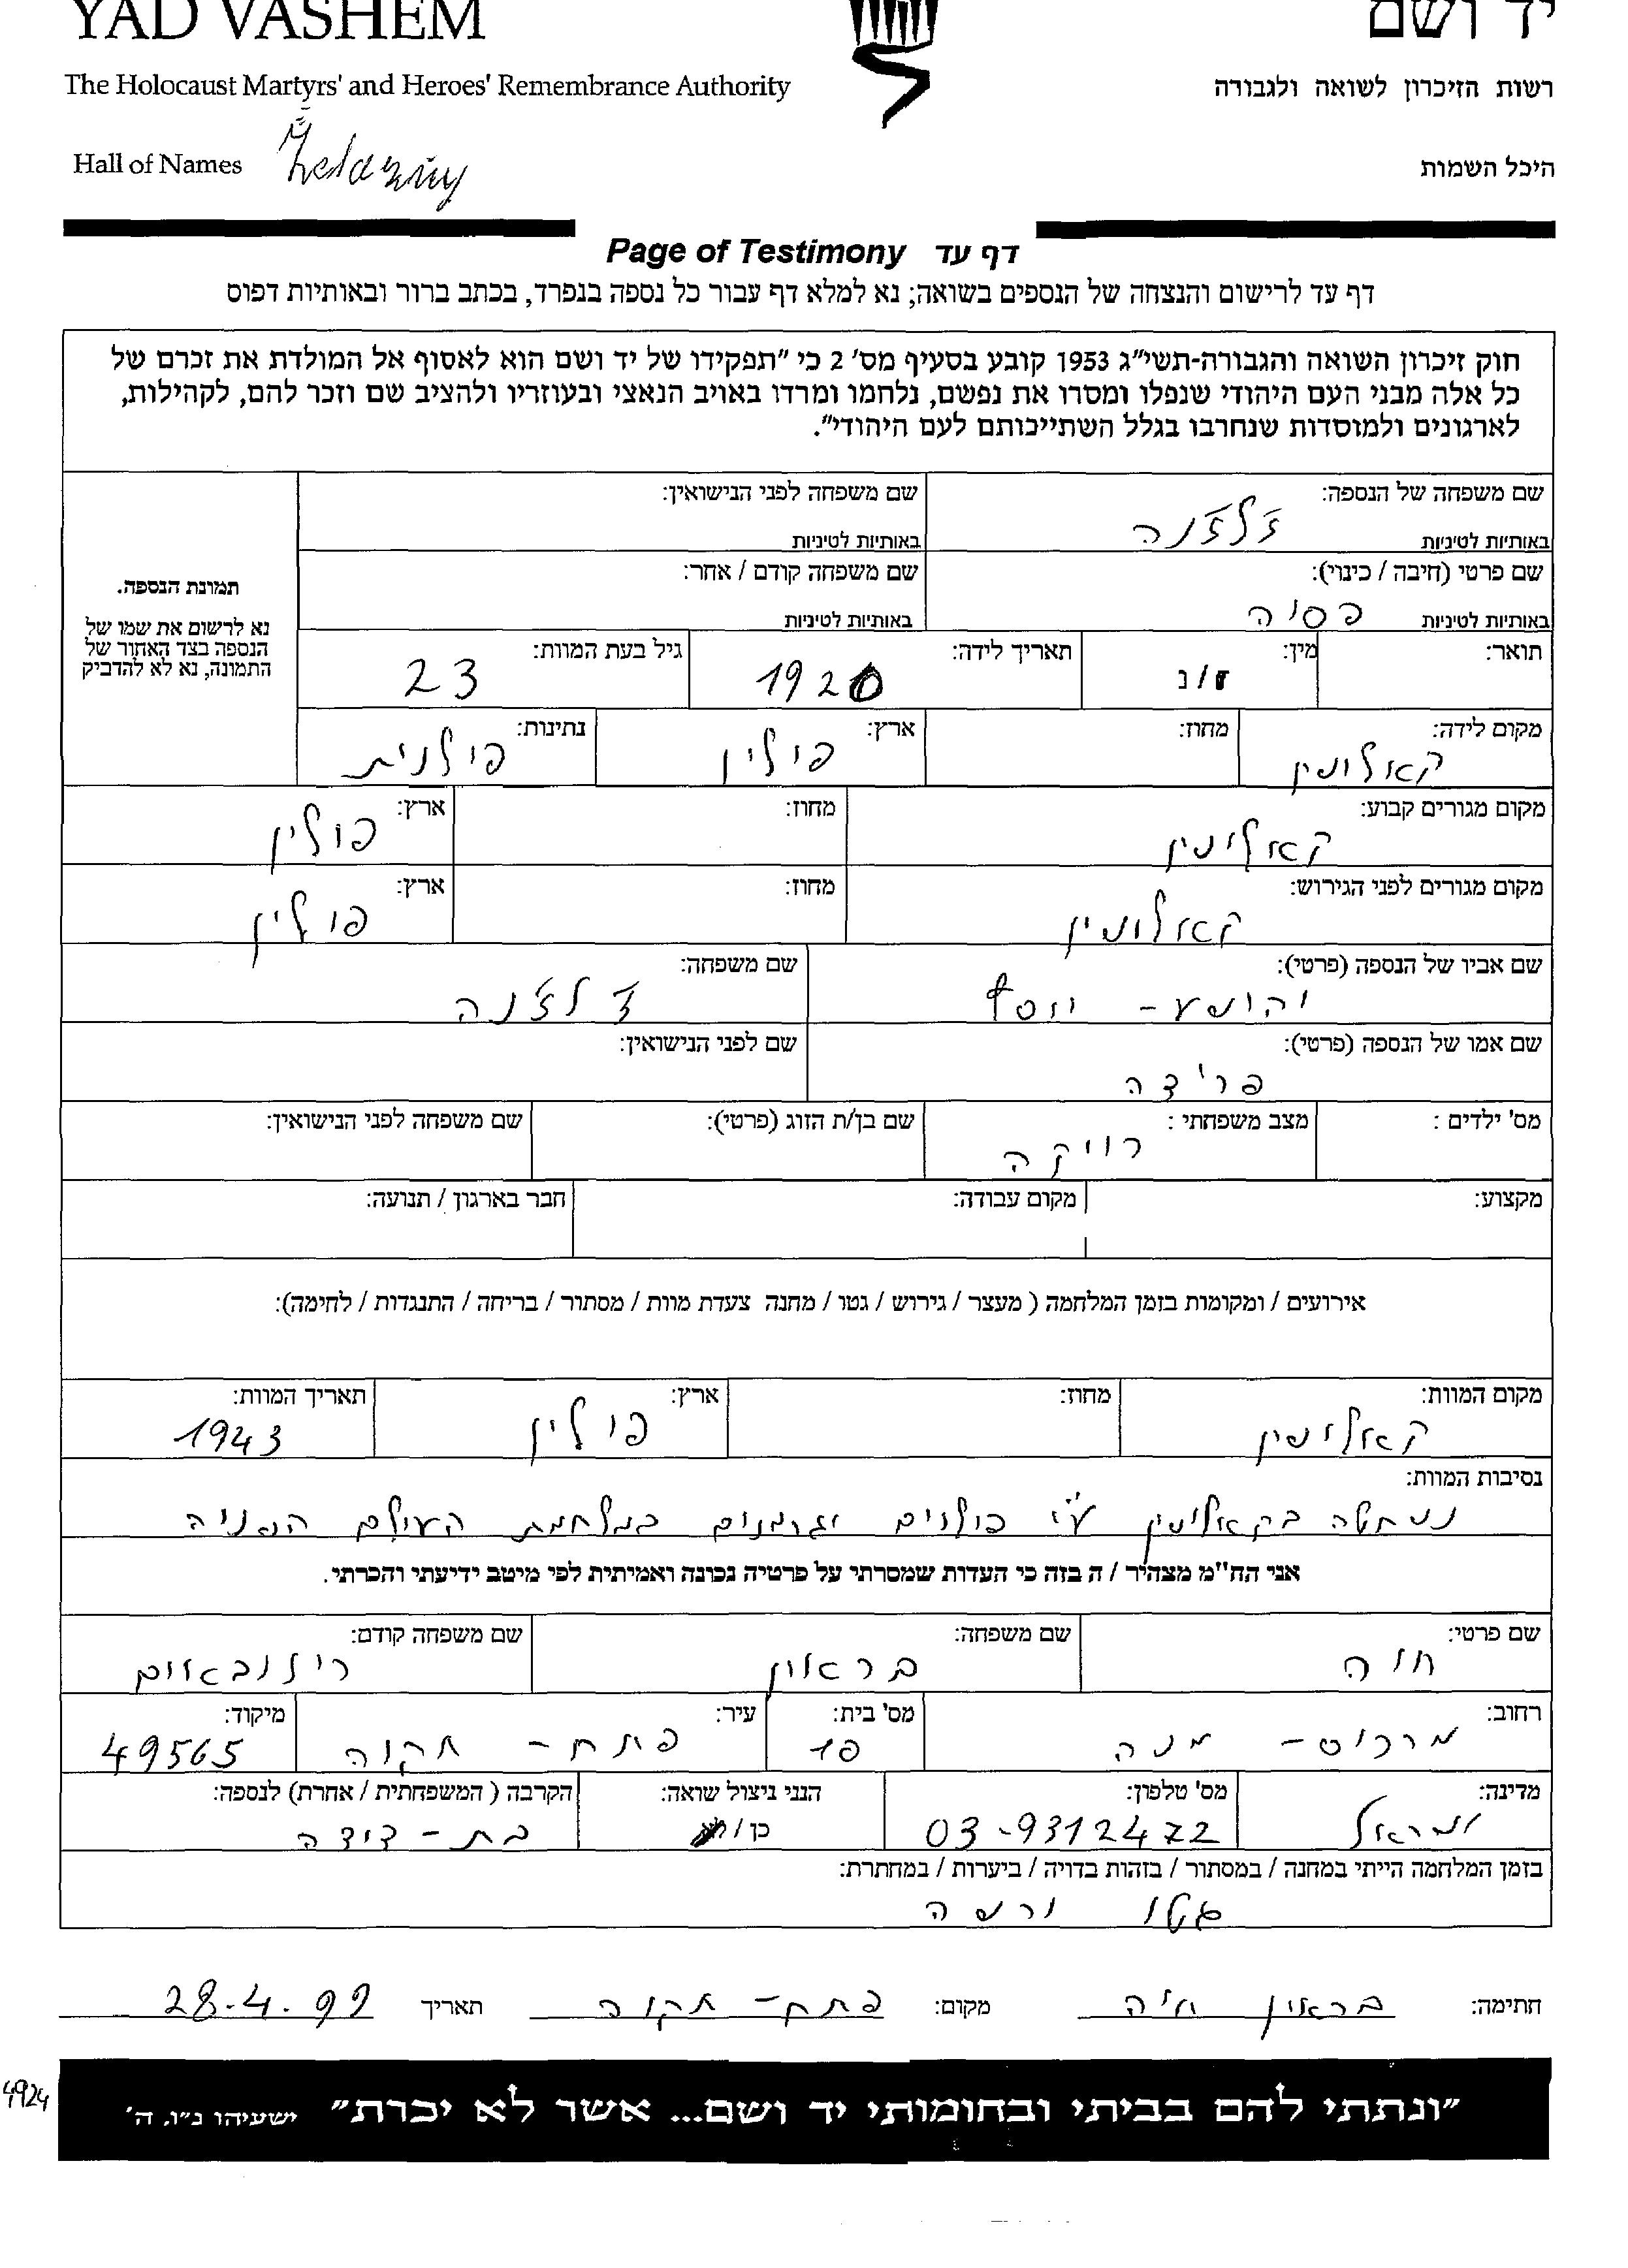 YAD VASHEM
יד ושם
The Holocaust Martyrs' and Heroes' Remembrance Authority
רשות הזיכרון לשואה ולגבורה
Hall of Names
היכל השמות
Page of Testimony דף עד
דף עד לרישום והנצחה של הנספים בשואה; נא למלא דף עבור כל נספה בנפרד, בכתב ברור ובאותיות דפוס
חוק זיכרון השואה והגבורה-תשי"ג 1953 קובע בסעיף מס' 2 כי "תפקידו של יד ושם הוא לאסוף אל המולדת את זכרם של
כל אלה מבני העם היהודי שנפלו ומסרו את נפשם, נלחמו ומרדו באויב הנאצי ובעוזריו ולהציב שם וזכר להם, לקהילות,
לארגונים ולמוסדות שנחרבו בגלל השתייכותם לעם היהודי".
שם משפחה של הנספה: שם משפחה לפני הנישואין:
ז'לז'נה
באותיות לטיניות באותיות לטיניות
שם פרטי (חיבה / כינוי): שם משפחה קודם / אחר:
פסיה
באותיות לטיניות באותיות לטיניות
תמונת הנספה.
נא לרשום את שמו של
הנספה בצד האחור של
התמונה, נא לא להדביק
תואר: מין: ז/נ תאריך לידה: 1920 גיל בעת המוות: 23
מקום לידה: קאלושין מחוז: ארץ: פולין נתינות: פולנית
מקום מגורים קבוע: קאלושין מחוז: ארץ: פולין
מקום מגורים לפני הגירוש: קאלושין מחוז: ארץ: פולין
שם אביו של הנספה (פרטי): יהושע - יוסף שם משפחה: ז'לז'נה
שם אמו של הנספה (פרטי): פרידה שם לפני הנישואין:
מס' ילדים : מצב משפחתי : רווקה שם בן/ת הזוג (פרטי): שם משפחה לפני הנישואין:
מקצוע: מקום עבודה: חבר בארגון / תנועה:
אירועים / ומקומות בזמן המלחמה ( מעצר / גירוש / גטו / מחנה צעדת מוות / מסתור / בריחה / התנגדות / לחימה):
מקום המוות: קאלושין מחוז: ארץ: פולין תאריך המוות: 1943
נסיבות המוות:
נשחטה בקאלושין ע"י פולנים וגרמנים במלחמת העולם השניה
אני הח"מ מצהיר / ה בזה כי העדות שמסרתי על פרטיה נכונה ואמיתית לפי מיטב ידיעתי והכרתי.
שם פרטי: חוה שם משפחה: בראון שם משפחה קודם:
רחוב: מרכוס - מנה מס' בית: 10 עיר: פתח - תקוה מיקוד: 49565
מדינה: ישראל מס' טלפון: 03-9312472 הנני ניצול שואה: כן / הקרבה ( המשפחתית / אחרת) לנספה: בת - דודה
בזמן המלחמה הייתי במחנה / במסתור / בזהות בדויה / ביערות / במחתרת:
גטו ורשה
חתימה: בראון חוה מקום: פתח - תקוה תאריך 28.4.99
4924
"ונתתי להם בביתי ובחומותי יד ושם... אשר לא יכרת" ישעיהו נ"ו, ה'